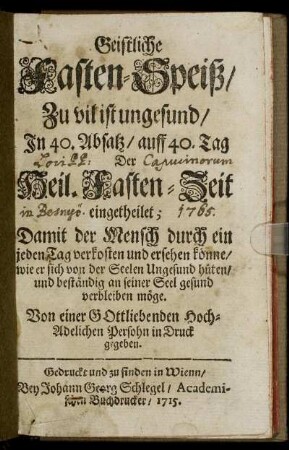 Geistliche
Fasten-Speiß/
Zu vil ist ungesund/
In 40. Absatz/ auff 40. Tag
Der Capucinorum
Heil. Fasten-Zeit
in Besnyö. eingetheilet; 1765.
Damit der Mensch durch ein
jeden Tag verkosten und ersehen könne/
wie er sich von der Seelen Ungesund hüten/
und beständig an seiner Seel gesund
verbleiben möge.
Von einer GOttliebenden Hoch-
Adelichen Persohn in Druck
gegeben.
Gedruckt und zu finden in Wienn/
Bey Johann Georg Schlegel/ Academi-
schen Buchdrucker/ 1715.